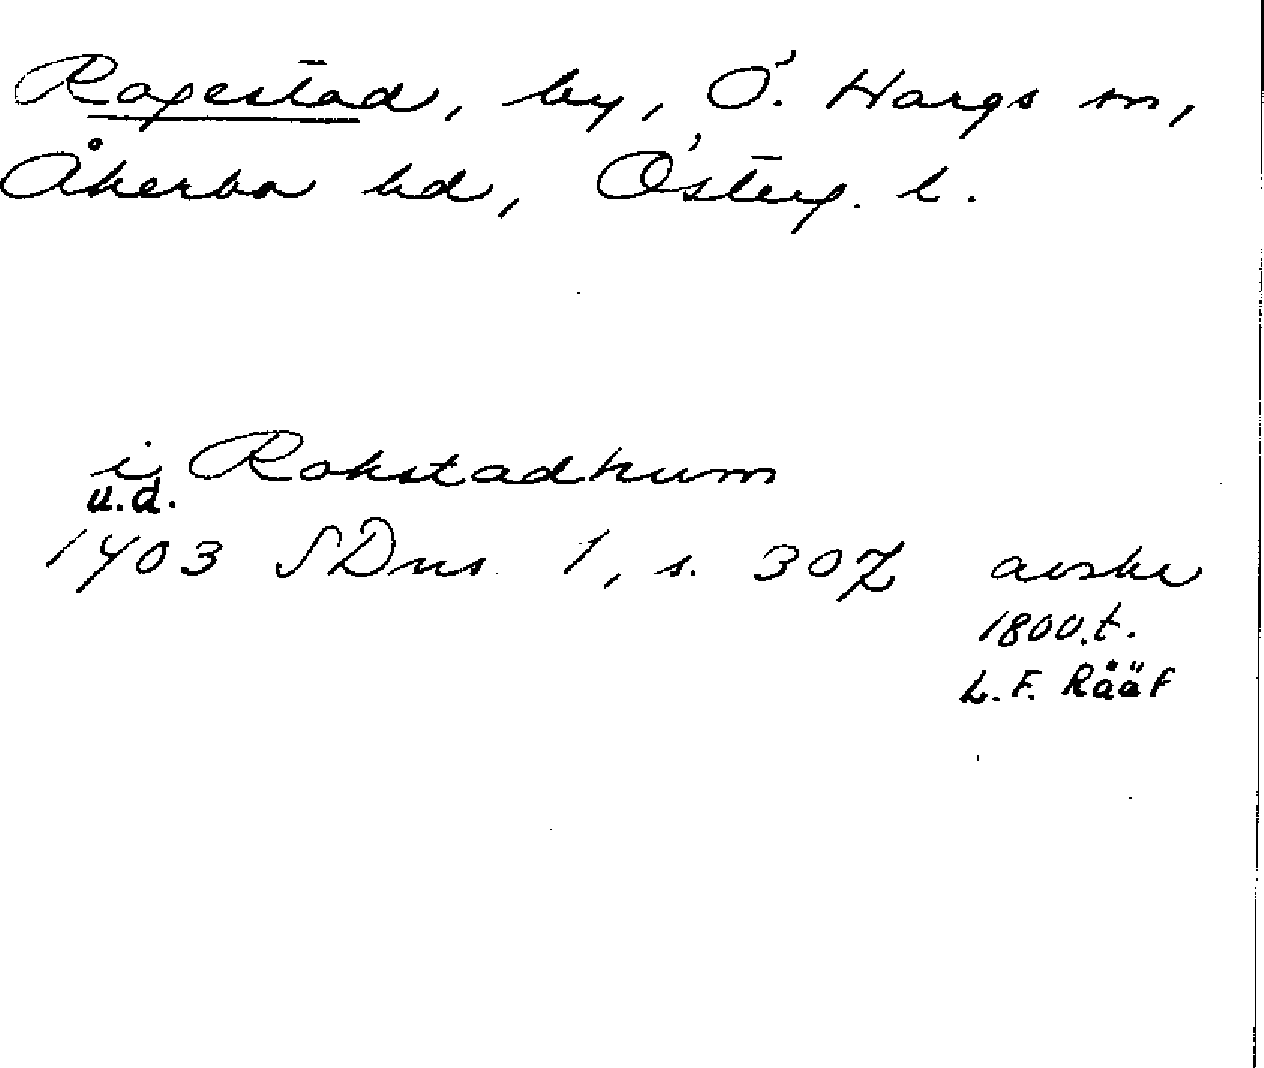 Ragestad, by, Ö. Hargs sn,
Åkerbo hd, Österg. l.
i Rokstadhum
u.d.
1403 SDns 1, s. 307 avskr
1800.t.
L. F. Rääf